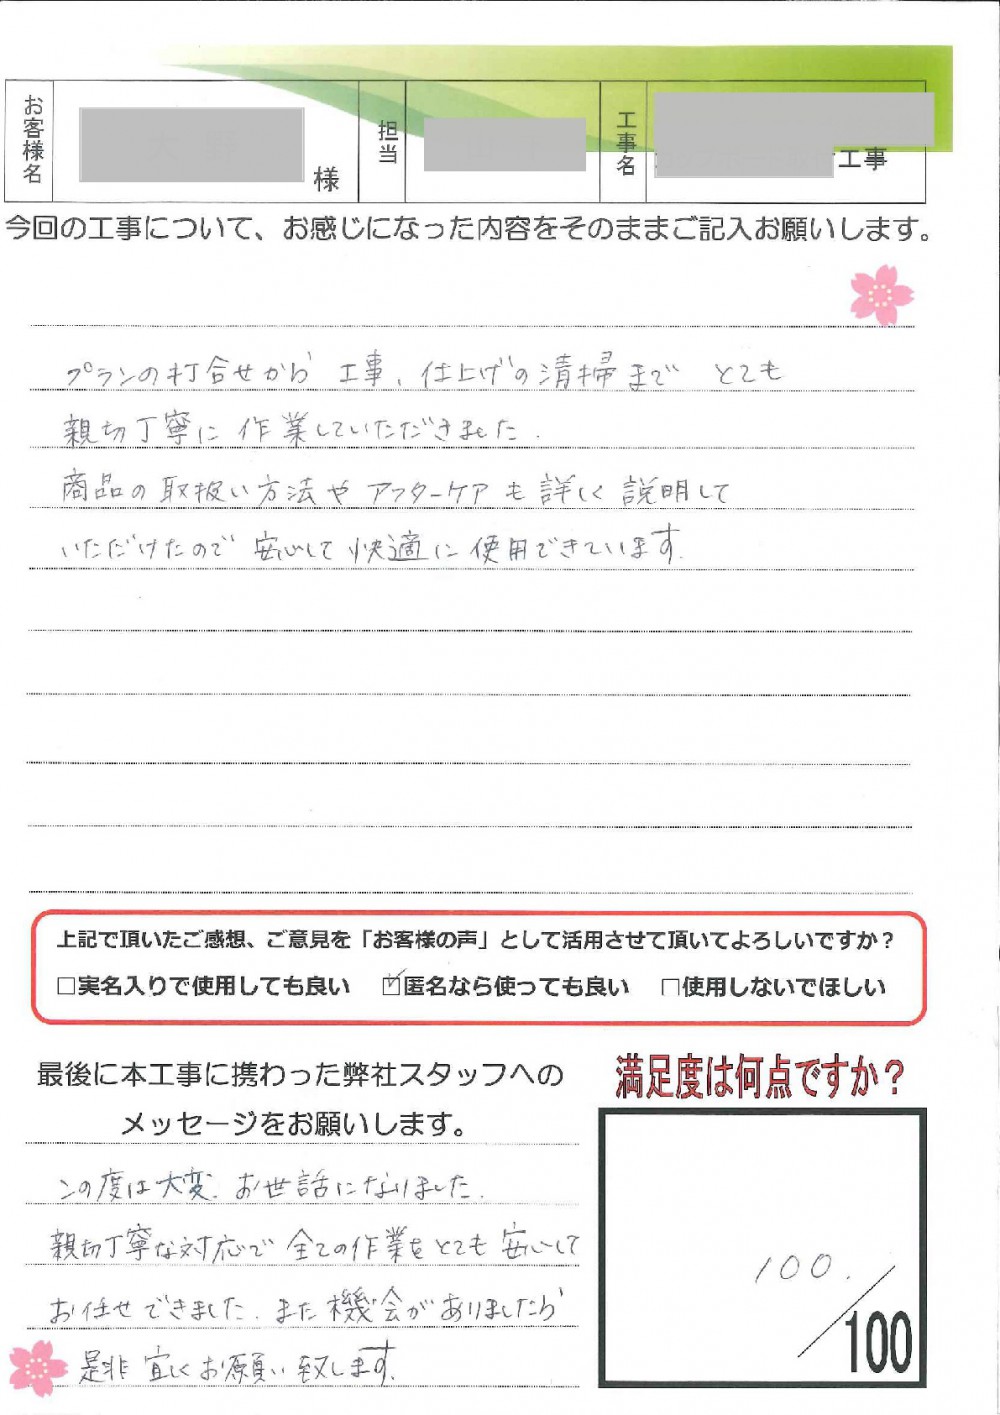 お客様名
様
担当
工事名
工事
今回の工事について、お感じになった内容をそのままご記入お願いします。
プランの打合せから 工事、仕上げの清掃まで とても
親切丁寧に 作業していただきました.
商品の取扱い方法や アフターケア も 詳しく 説明して
いただけたので 安心して 快適に 使用できています.
上記で頂いたご感想、ご意見を「お客様の声」として活用させて頂いてよろしいですか？
□実名入りで使用しても良い ☑匿名なら使っても良い □使用しないでほしい
最後に本工事に携わった弊社スタッフへの
メッセージをお願いします。
この度は大変. お世話になりました.
親切丁寧な対応で 全ての作業をとても 安心して
お任せできました. また機会がありましたら
是非 宜しくお願い致します.
満足度は何点ですか？
100.
100